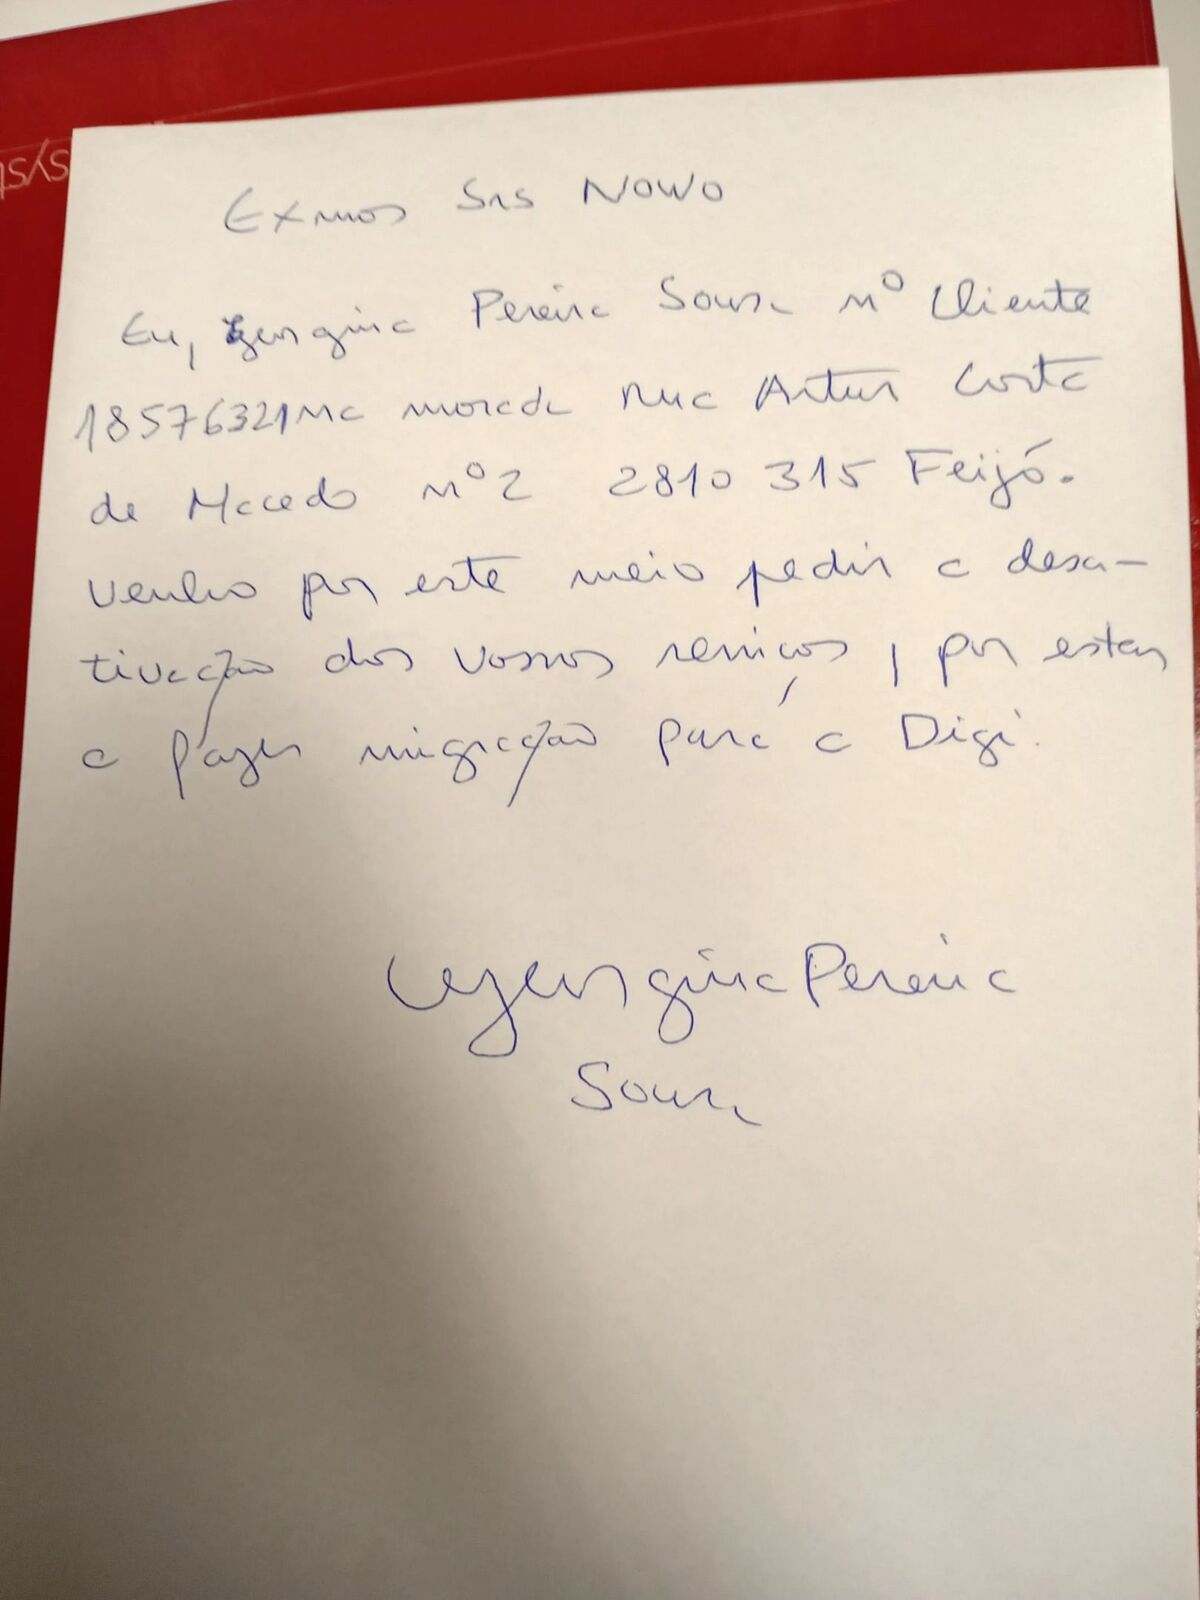 Exmos Srs NOWO
Eu, Georgina Pereira Sousa nº Cliente
18576321 na morada Rua Artur Costa
de Macedo nº 2 2810 315 Feijó.
Venho por este meio pedir a desa-
tivação dos vossos serviços, por estar
a fazer migração para a Digi.
Georgina Pereira
Sousa